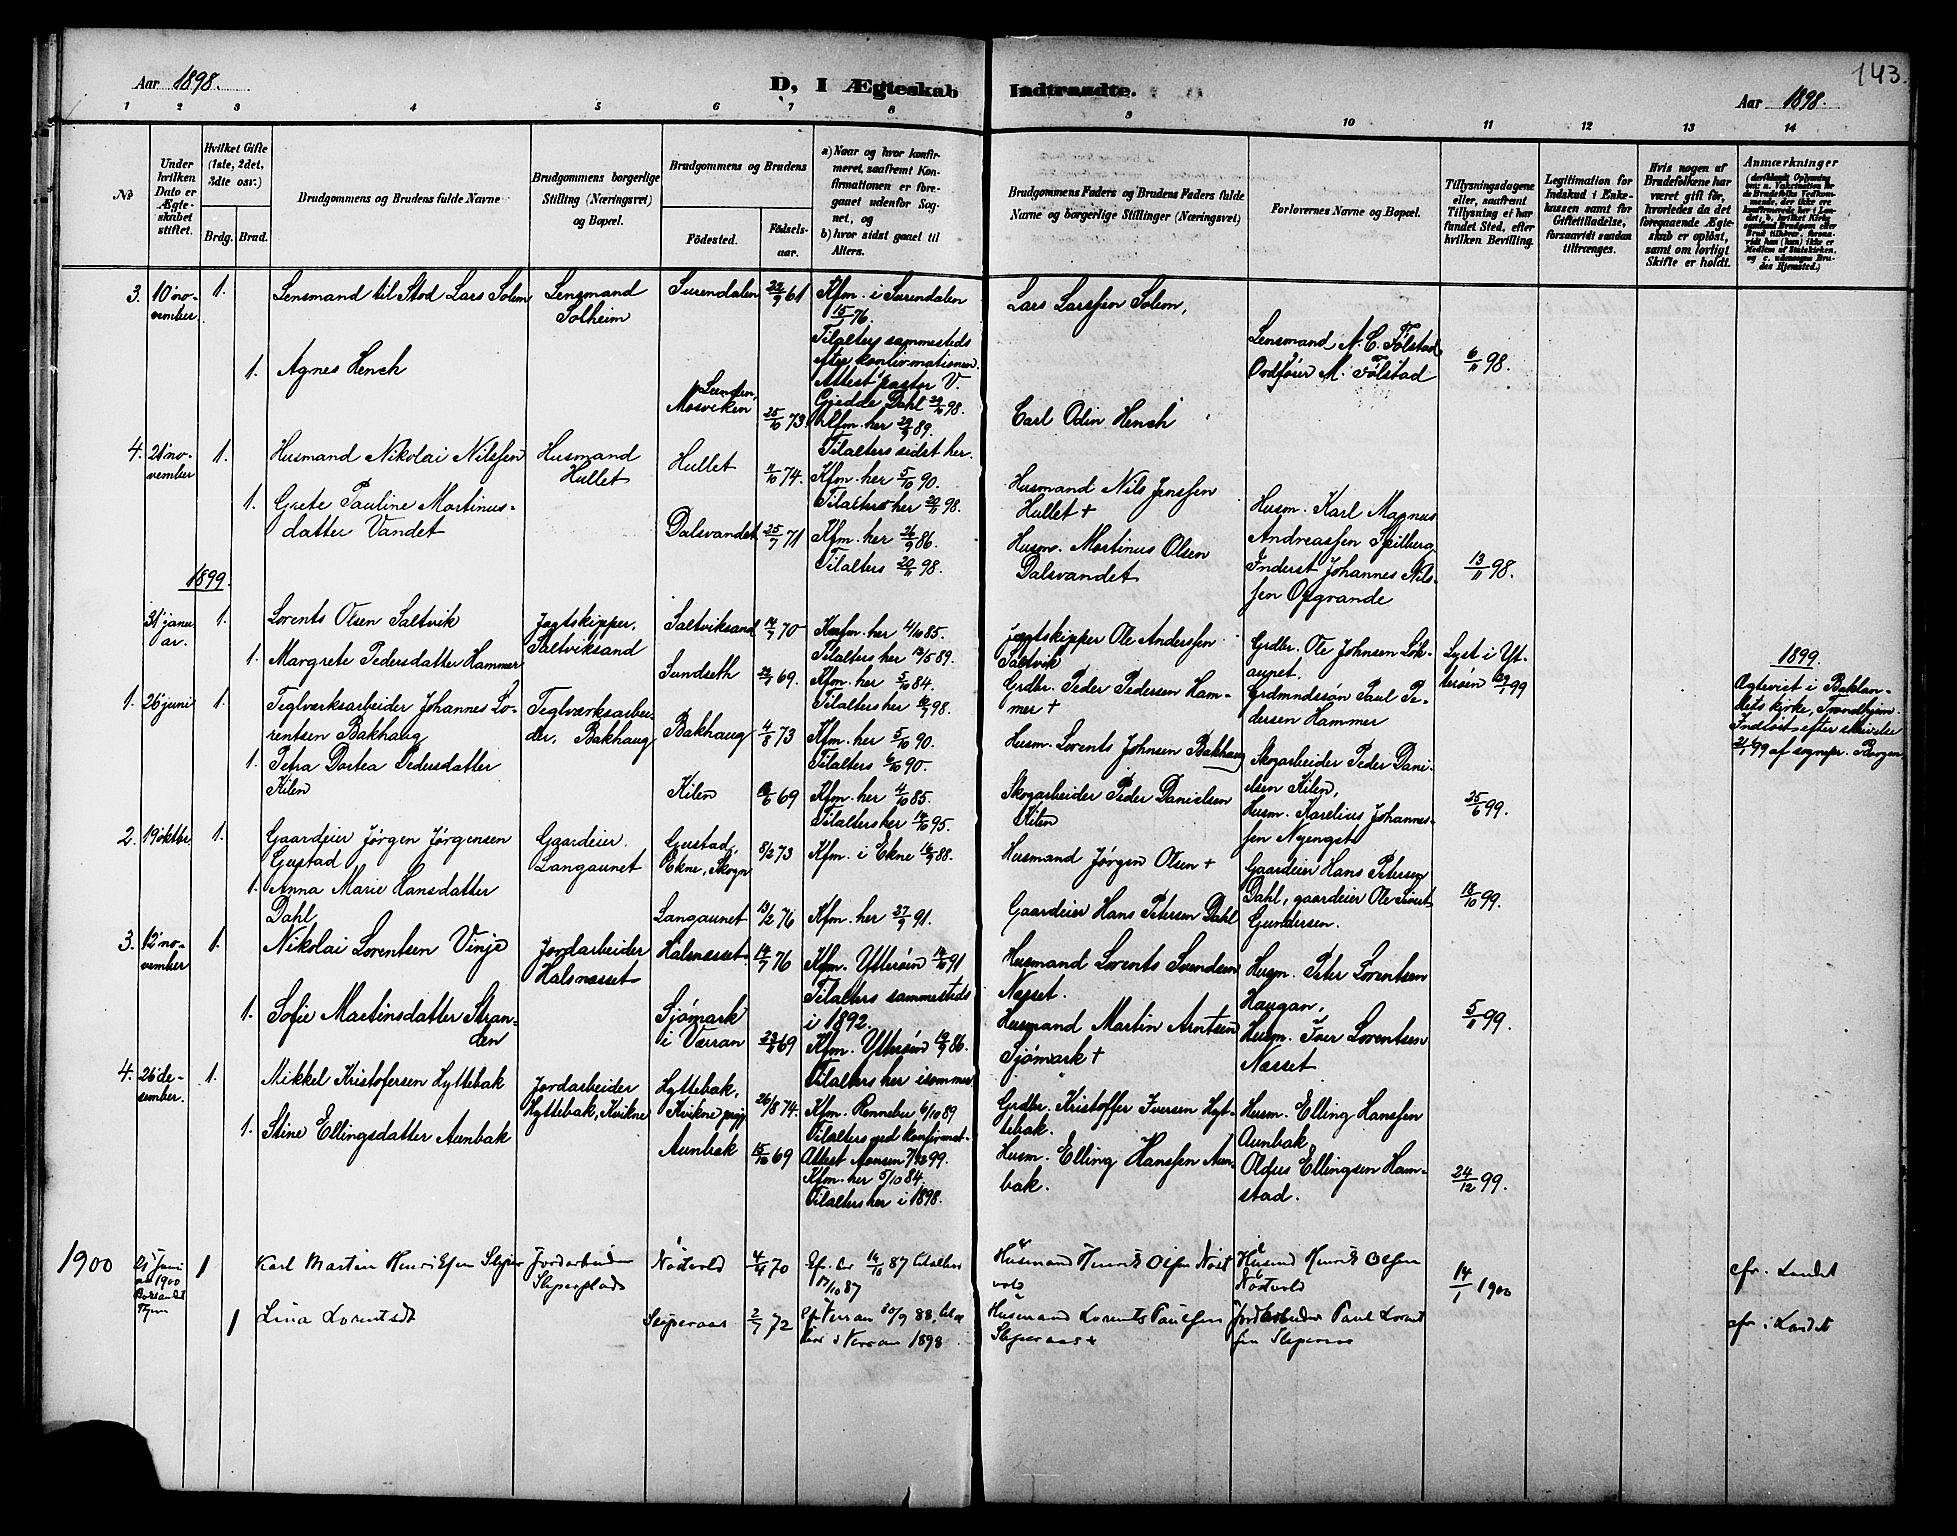 143.
Aar 1898.
D, I Ægteskab Indtraadte.
Aar 1898.
1 2 3 4 5 6 7 8 9 10 11 12 13 14
No
Under hvilken Dato er Ægteskabet stiftet.
Hvilket Gifte (1ste, 2det, 3die osv.)
Brdg. Brud.
Brudgommens og Brudens fulde Navne
Brudgommens borgerlige Stilling (Næringsvei) og Bopæl.
Brudgommens og Brudens
Fødested.
Fødselsaar.
a) Naar og hvor konfirmeret, saafremt Konfirmationen er foregaaet udenfor Sognet, og
b) hvor sidst gaaet til Alters.
Brudgommens Faders og Brudens Faders fulde Navne og borgerlige Stillinger (Næringsvei)
Forlovernes Navne og Bopæl.
Tillysningsdagene eller, saafremt Tillysning ei har fundet Sted, efter hvilken Bevilling.
Legitimation for Indskud i Enkekassen samt for Giftetilladelse, forsaavidt saadan tiltrænges.
Hvis nogen af Brudefolkene har været gift før, hvorledes da det foregaaende Ægteskab er opløst, samt om lovligt Skifte er holdt.
Anmærkninger
3. 10' november 1. Lensmand til Stod Lars Solem
Lensmand Solheim
Surendalen 22/9 61
Kfm. i Surendalen
15/ 76.
Tilalters sammesteds
efter konfirmationen.
Attest pastor V.
Gjedde Dahl 98.
Lars Larssen Solem,
Lensmand N. C. Følstad,
Ordfører M. Følstad
6/11 98.
1. Agnes Hench
Mosviken 25/10 73
Kfm. her 29/9 89.
Tilalters sidst her.
Carl Odin Hench
4. 21' november 1. Husmand Nikolai Nilssen
Husmand Hullet
Hullet 74.
Kfm. her 5/10 90.
Tilalters her 20/11 98.
Husmand Nils Jenssen
Hullet +
Husm. Karl Magnus
Andreassen Speilberg
Inderst Johannes Nilssen Opgrande
13/11 98.
1. Grete Pauline Martinusdatter Vandet
Dalsvandet 25/7 71
Kfm. her 26/9 86.
Tilalters 20/11 98.
Husm. Martinus Olsen
Dalsvandet
1899.
31' januar. 1. Lorents Olsen Saltvik
Jagtskipper,
Saltviksand
Saltviksand 70
Konfm. her 4/10 85.
Tilalters her 12/5 89.
Jagtskipper Ole Anderssen
Saltvik
Grdbr. Ole Johnsen Lokaunet.
Grdmndssøn Paul Pedersen Hammer
Lyst i Ytterøen 99
1899.
Ægteviet i Baklandets kirke, Trondhjem.
Indført efter skrivelse
99 af sognepr.
1. Margrete Pedersdatter Hammer
Sundseth 69.
Kfm. her 5/10 84.
Tilalters her 98.
Grdbr. Peder Pedersen Hammer +
1. 26' juni 1. Teglværksarbeider Johannes Lorentsen Bakhaug
Teglværksarbeider, Bakhaug
Bakhaug 4/8 73
Kfm. her 5/10 90.
Tilalters 90.
Husm. Lorents Johnsen Bakhaug
Skogarbeider Peder Danielsen Kilen,
Husm. Karelius Johannessen Nyenget
25/6 99.
1. Petra Dortea Pedersdatter
Kilen
Kilen 69
Kfm. her 4/10 85.
Tilalters her 95.
Skogarbeider Peder Danielsen
Kilen
2. 19' oktbr. 1. Gaardeier Jørgen Jørgensen
Gustad
Gaardeier
Langaunet
Gustad,
Ekne, Skogn 8/2 73
Kfm. i Ekne 88.
Husmand Jørgen Olsen +
Gaardeier Hans Petersen
Dahl, gaardeier Ole Sivert
Gundersen.
18/10 99.
1. Anna Marie Hansdatter
Dahl,
Langaunet 13/2 76
Kfm. her 27/9 91.
Gaardeier Hans Petersen Dahl
3. 12' november 1. Nikolai Lorentsen Vinje
Jordarbeider
Halsnæsset
Halsnæsset. 14/7 76
Kfm. Ytterøen 91
Tilalters sammesteds
i 1892.
Husmand Lorents Svendsen
Næsset.
Husm. Peter Lorentsen
Haugan,
Husm. Iver Lorentsen
Næsset
5/11 99.
1. Sofie Martinsdatter Stranden
Sjømark
i Værran 69
Kfm. Ytterøen 86.
Tilalters her i sommer
Husmand Martin Arntsen
Sjømark +
4. 26' desember. 1. Mikkel Kristofersen Hyttebak
Jordarbeider
Hyttebak, Kvikne
Hyttebak,
Kvikne 26/8 74.
Kfm. Rennebu 6/10 89
Tilalters ved konfirmat.
Attest Monsen 99.
Grdbr. Kristoffer Iversen Hyttebak.
Husm. Elling Hanssen
Aunbak,
Oldus Ellingsen Hamstad.
24/12 99.
1. Stine Ellingsdatter Aunbak
Aunbak 15/10 69
Kfm. her 5/10 84.
Tilalters her i 1898.
Husm. Elling Hanssen Aunbak.
1900
Juni
1900
1 Karl Martin Henriksen Sliper
Jordarbeider
Sliperplads
Nöstvold 70
87
87
Husmand Henrik Olsen Nöstvold
Husmand Henrik Olsen
Nöstvold
14/1 1900
cfr. Landet
1 Lina Lorentsdt
Sliperaas 2/7 72
Verran 30/9 88,
i Verran 1898
Husmand Lorents Paulsen
Sliperaas +
Jordarbeider Paul Lorentsen Sliperaas
cfr. i Landet